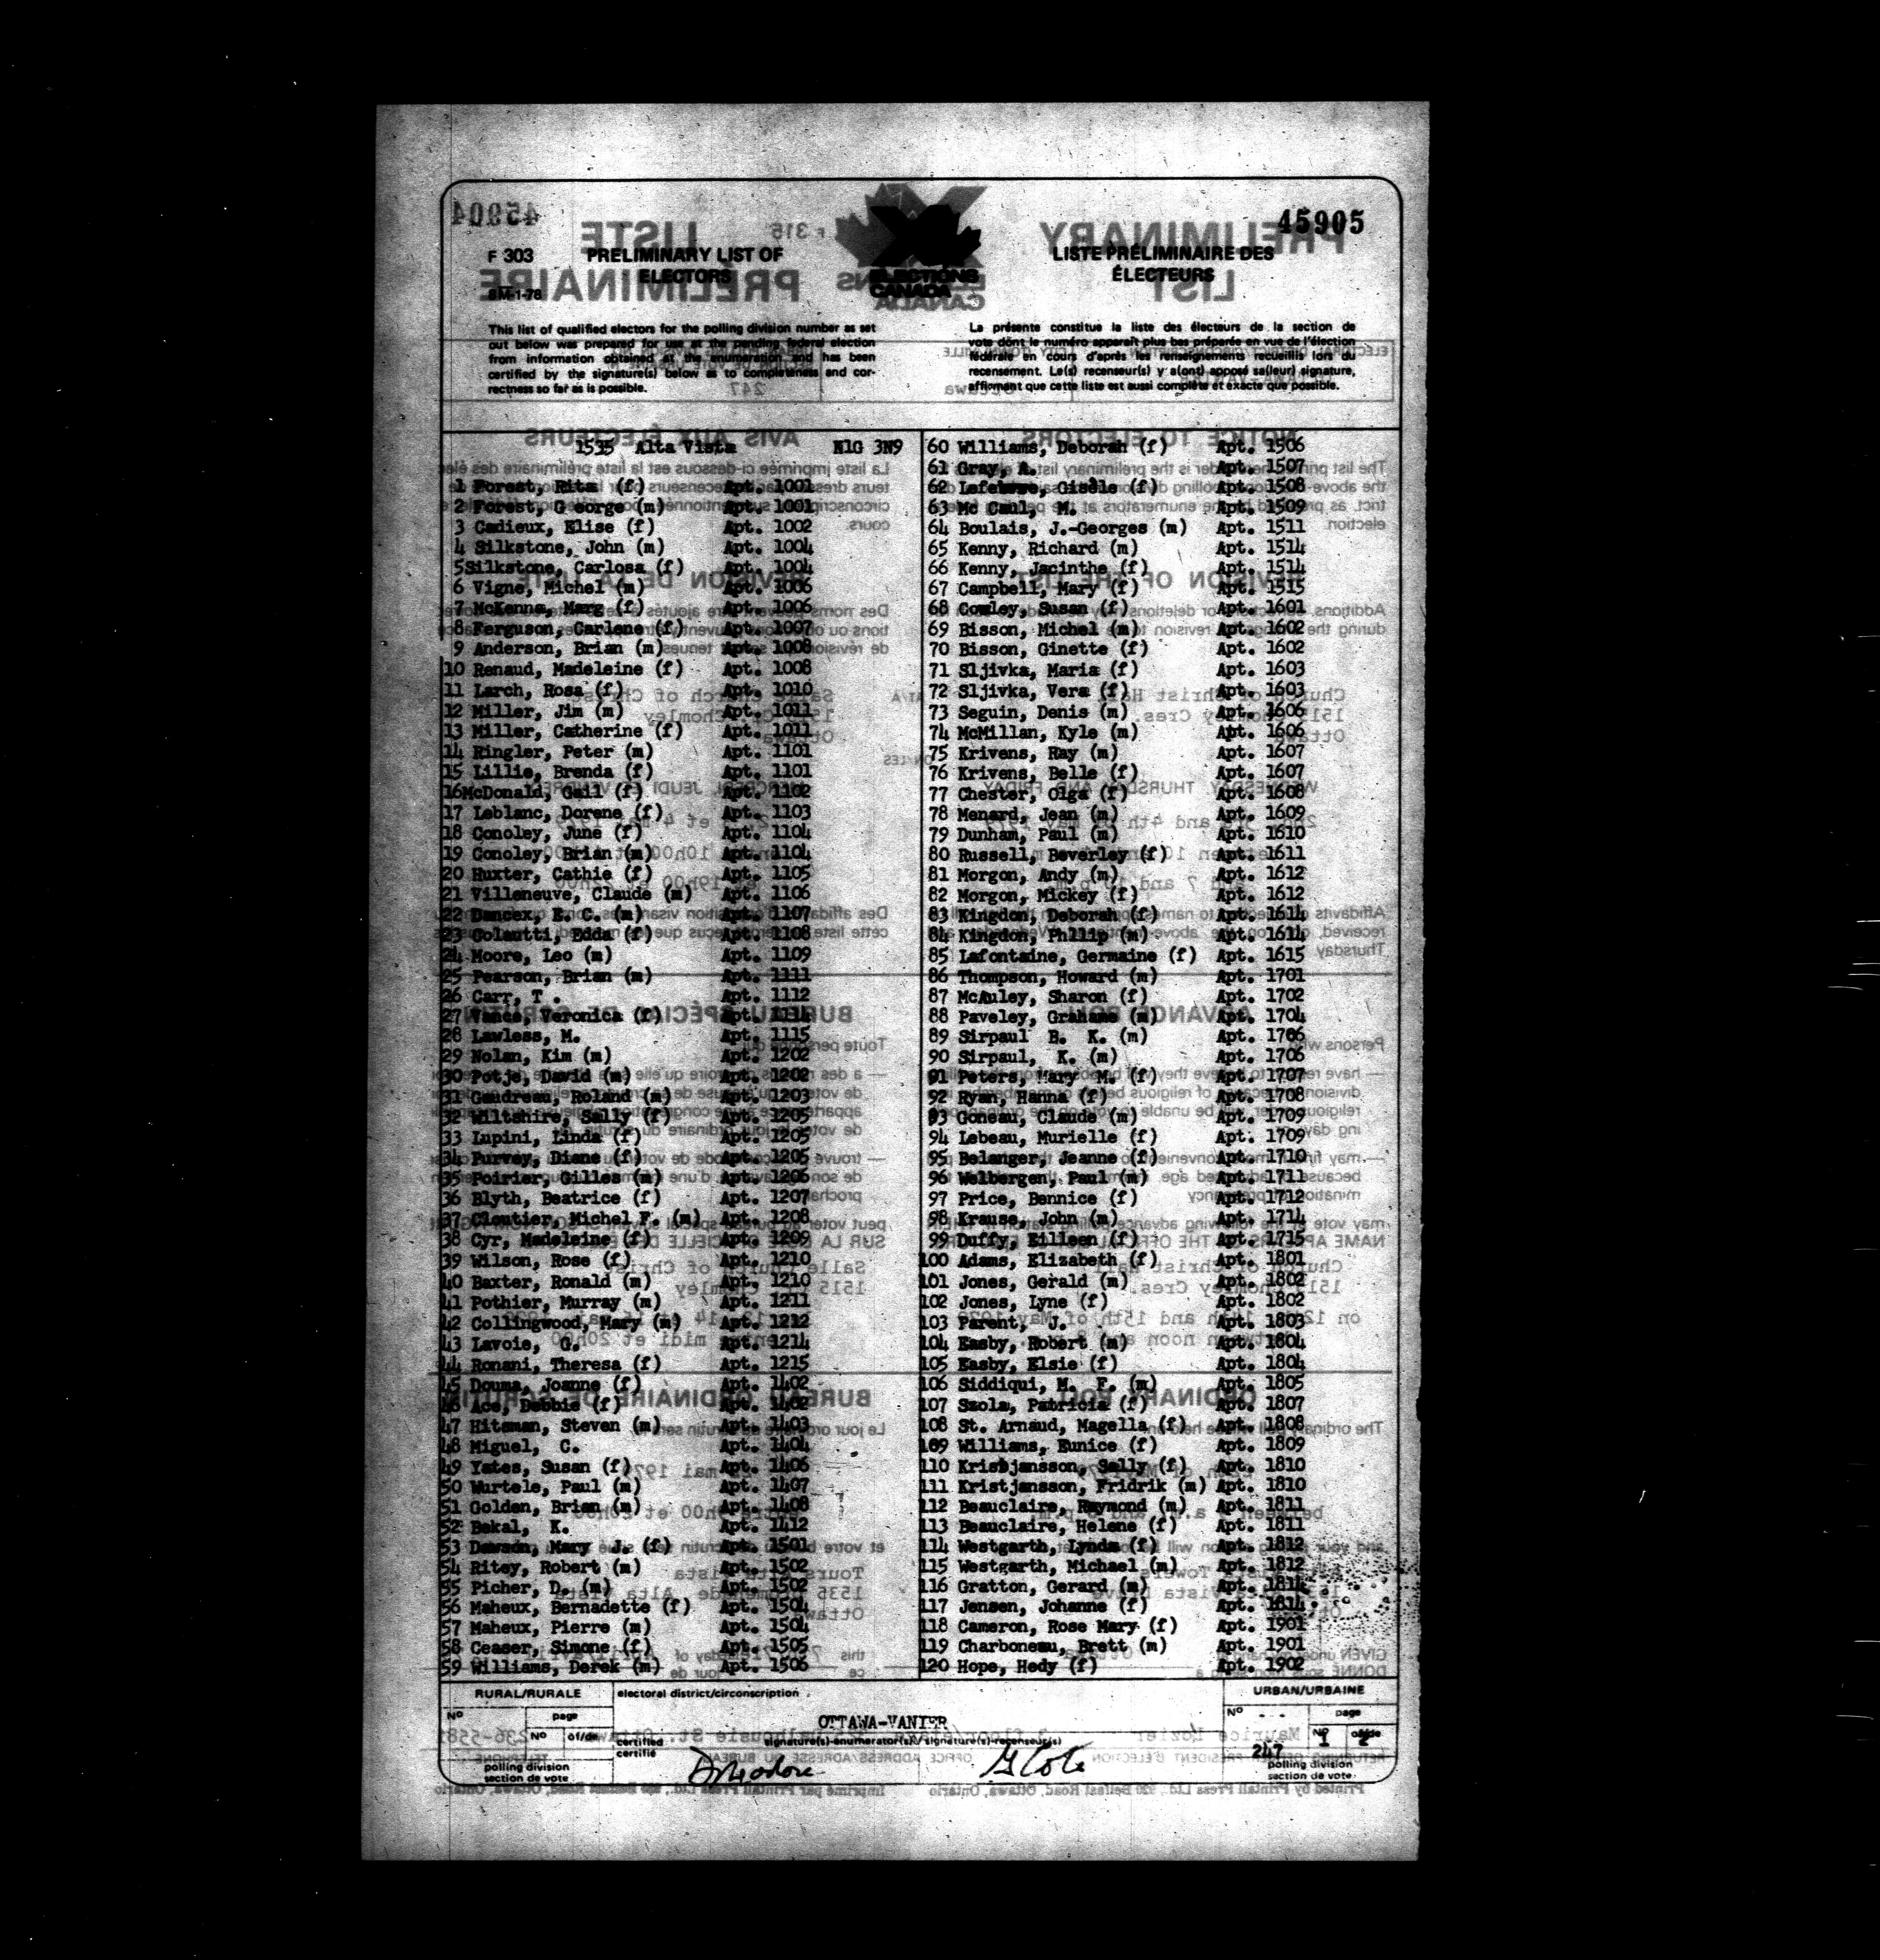 45905
F 303
PRELIMINARY LIST OF
ELECTORS
8M-1-78
ELECTIONS
CANADA
LISTE PRÉLIMINAIRE DES
ÉLECTEURS
This list of qualified electors for the polling division number as set
out below was prepared for use at the pending federal election
from information obtained at the enumeration and has been
certified by the signature(s) below as to completeness and cor-
rectness so far as is possible.
La présente constitue la liste des électeurs de la section de
vote dont le numéro apparaît plus bas préparée en vue de l'élection
fédérale en cours d'après les renseignements recueillis lors du
recensement. Le(s) recenseur(s) y a(ont) apposé sa(leur) signature,
affirmant que cette liste est aussi complète et exacte que possible.
1535 Alta Vista N1G 3N9
1 Forest, Rita (f) Apt. 1001
2 Forest, G eorge (m) Apt. 1001
3 Cadieux, Elise (f) Apt. 1002
4 Silkstone, John (m) Apt. 1004
5Silkstone, Carlosa (f) Apt. 1004
6 Vigne, Michel (m) Apt. 1006
7 McKenna, Marg (f) Apt. 1006
8 Ferguson, Carlene (f) Apt. 1007
9 Anderson, Brian (m) Apt. 1008
10 Renaud, Madeleine (f) Apt. 1008
11 Larch, Rosa (f) Apt. 1010
12 Miller, Jim (m) Apt. 1011
13 Miller, Catherine (f) Apt. 1011
14 Ringler, Peter (m) Apt. 1101
15 Lillie, Brenda (f) Apt. 1101
16McDonald, Gail (f) Apt. 1102
17 Leblanc, Dorene (f) Apt. 1103
18 Conoley, June (f) Apt. 1104
19 Conoley, Brian (m) Apt. 1104
20 Huxter, Cathie (f) Apt. 1105
21 Villeneuve, Claude (m) Apt. 1106
22 Dancex, E. C. (m) Apt. 1107
23 Colautti, Edda (f) Apt. 1108
24 Moore, Leo (m) Apt. 1109
25 Pearson, Brian (m) Apt. 1111
26 Carr, T . Apt. 1112
27 Vance, Veronica (f) Apt. 1114
28 Lawless, M. Apt. 1115
29 Nolan, Kim (m) Apt. 1202
30 Potje, David (m) Apt. 1202
31 Gaudreau, Roland (m) Apt. 1203
32 Wiltshire, Sally (f) Apt. 1205
33 Lupini, Linda (f) Apt. 1205
34 Purvey, Diane (f) Apt. 1205
35 Poirier, Gilles (m) Apt. 1206
36 Blyth, Beatrice (f) Apt. 1207
37 Cloutier, Michel F. (m) Apt. 1208
38 Cyr, Madeleine (f) Apt. 1209
39 Wilson, Rose (f) Apt. 1210
40 Baxter, Ronald (m) Apt. 1210
41 Pothier, Murray (m) Apt. 1211
42 Collingwood, Mary (m) Apt. 1212
43 Lavoie, G. Apt. 1214
44 Ronani, Theresa (f) Apt. 1215
45 Douma, Joanne (f) Apt. 1402
46 Ace, Debbie (f) Apt. 1402
47 Hitsman, Steven (m) Apt. 1403
48 Miguel, C. Apt. 1404
49 Yates, Susan (f) Apt. 1406
50 Wurtele, Paul (m) Apt. 1407
51 Golden, Brian (m) Apt. 1408
52 Bekal, K. Apt. 1412
53 Dawson, Mary J. (f) Apt. 1501
54 Ritey, Robert (m) Apt. 1502
55 Picher, D. (m) Apt. 1502
56 Maheux, Bernadette (f) Apt. 1504
57 Maheux, Pierre (m) Apt. 1504
58 Ceaser, Simone (f) Apt. 1505
59 Williams, Derek (m) Apt. 1506
60 Williams, Deborah (f) Apt. 1506
61 Gray, A. Apt. 1507
62 Lefebvre, Gisèle (f) Apt. 1508
63 Mc Caul, M. Apt. 1509
64 Boulais, J.-Georges (m) Apt. 1511
65 Kenny, Richard (m) Apt. 1514
66 Kenny, Jacinthe (f) Apt. 1514
67 Campbell, Mary (f) Apt. 1515
68 Cowley, Susan (f) Apt. 1601
69 Bisson, Michel (m) Apt. 1602
70 Bisson, Ginette (f) Apt. 1602
71 Sljivka, Maria (f) Apt. 1603
72 Sljivka, Vera (f) Apt. 1603
73 Seguin, Denis (m) Apt. 1606
74 McMillan, Kyle (m) Apt. 1606
75 Krivens, Ray (m) Apt. 1607
76 Krivens, Belle (f) Apt. 1607
77 Chester, Olga (f) Apt. 1608
78 Menard, Jean (m) Apt. 1609
79 Dunham, Paul (m) Apt. 1610
80 Russell, Beverley (f) Apt. 1611
81 Morgon, Andy (m) Apt. 1612
82 Morgon, Mickey (f) Apt. 1612
83 Kingdon, Deborah (f) Apt. 1614
84 Kingdon, Phllip (m) Apt. 1614
85 Lafontaine, Germaine (f) Apt. 1615
86 Thompson, Howard (m) Apt. 1701
87 McAuley, Sharon (f) Apt. 1702
88 Paveley, Grahame (m) Apt. 1704
89 Sirpaul B. K. (m) Apt. 1706
90 Sirpaul, K. (m) Apt. 1706
91 Peters, Mary M. (f) Apt. 1707
92 Ryan, Hanna (f) Apt. 1708
93 Goneau, Claude (m) Apt. 1709
94 Lebeau, Murielle (f) Apt. 1709
95 Belanger, Jeanne (f) Apt. 1710
96 Welbergen, Paul (m) Apt. 1711
97 Price, Bennice (f) Apt. 1712
98 Krause, John (m) Apt. 1714
99 Duffy, Eilleen (f) Apt. 1715
100 Adams, Elizabeth (f) Apt. 1801
101 Jones, Gerald (m) Apt. 1802
102 Jones, Lyne (f) Apt. 1802
103 Parent, J. Apt. 1803
104 Easby, Robert (m) Apt. 1804
105 Easby, Elsie (f) Apt. 1804
106 Siddiqui, M. F. (m) Apt. 1805
107 Szola, Patricia (f) Apt. 1807
108 St. Arnaud, Magella (f) Apt. 1808
109 Williams, Eunice (f) Apt. 1809
110 Kristjansson, Sally (f) Apt. 1810
111 Kristjansson, Fridrik (m) Apt. 1810
112 Beauclaire, Raymond (m) Apt. 1811
113 Beauclaire, Helene (f) Apt. 1811
114 Westgarth, Lynda (f) Apt. 1812
115 Westgarth, Michael (m) Apt. 1812
116 Gratton, Gerard (m) Apt. 1814
117 Jensen, Johanne (f) Apt. 1814
118 Cameron, Rose Mary (f) Apt. 1901
119 Charboneau, Brett (m) Apt. 1901
120 Hope, Hedy (f) Apt. 1902
RURAL/RURALE
No
page
No of/de
polling division
section de vote
electoral district/circonscription
OTTAWA-VANIER
certified
certifié
signature(s)-enumerator(s)/signature(s)-recenseur(s)
G Cote
URBAN/URBAINE
No
page
No of/de
247 1 2
polling division
section de vote